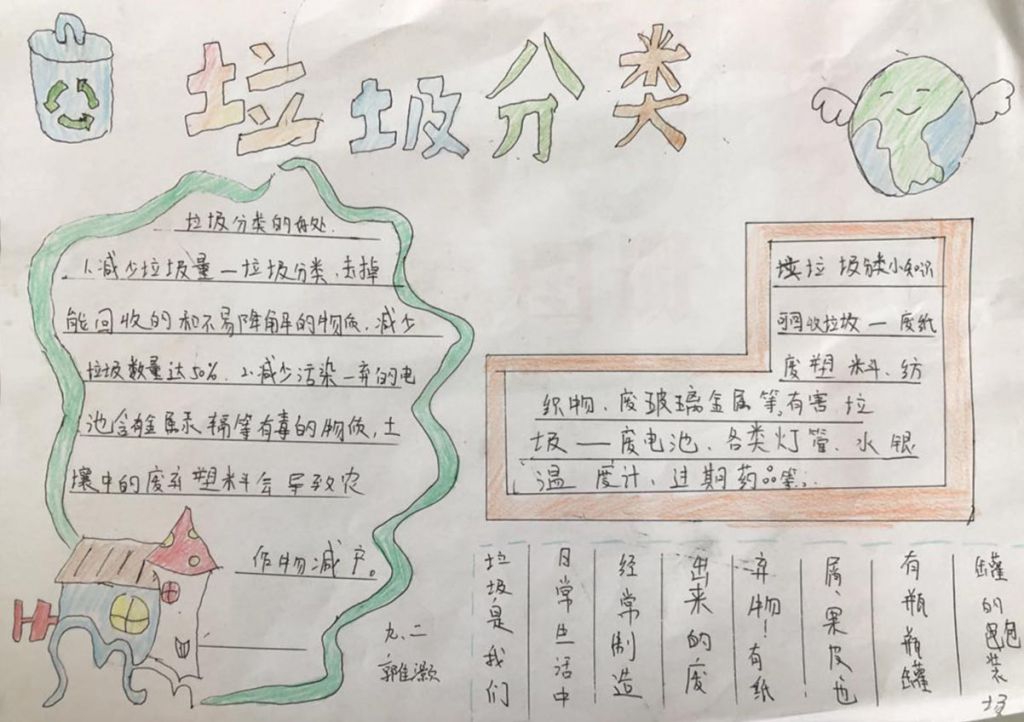 垃圾分类
垃圾分类的好处
1、减少垃圾量一垃圾分类,去掉
能回收的和不易降解的物质,减少
垃圾数量达50%、2、减少污染一弃的电
池含有金属汞、镉等有毒的物质,土
壤中的废弃塑料会导致农
作物减产。
九、二
垃圾分类小知识
可回收垃圾一废纸
废塑料、纺
织物、废玻璃金属等,有害垃
圾——废电池、各类灯管、水银
温度计、过期药品等;
垃圾是我们
日常生活中
经常制造
出来的废
弃物!有纸
屑、果皮也
有瓶瓶罐
罐的包装